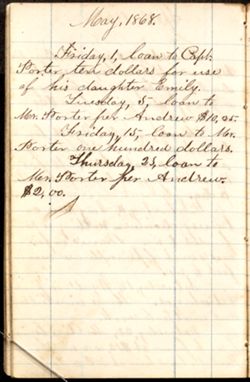 May, 1868.
Friday, 1, loan to Capt.
Porter, ten dollars for use
of his daughter Emily.
Tuesday, 5, loan to
Mr. Porter per Andrew $10,25.
Friday, 15, loan to Mr.
Porter one hundred dollars.
Thursday, 28, loan to
Mr. Porter per Andrew.
$2,00.